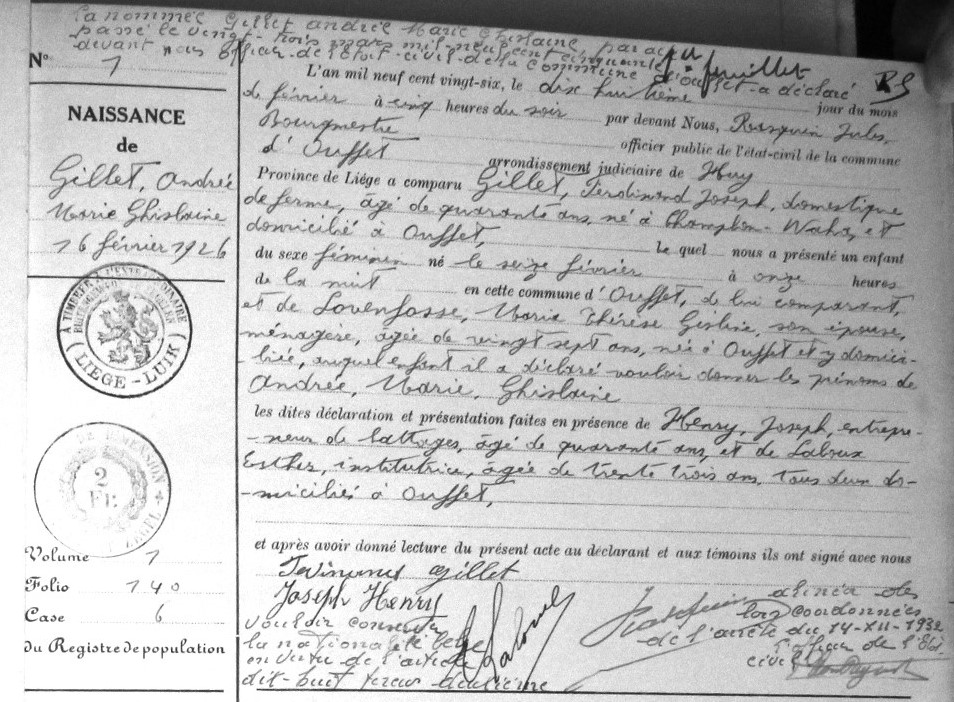 La nommée Gillet andrée Marie Ghislaine par acte
passé le vingt-trois mars mil neuf cent cinquante
devant nous officier de l'état-civil de la commune d'Ouffet a déclaré
1er feuillet
RJ
N° 1
L'an mil neuf cent vingt-six, le dix huitième jour du mois
de février à cinq heures du soir par devant Nous, Rasquin Jules,
Bourgmestre officier public de l'état-civil de la commune
d'Ouffet arrondissement judiciaire de Huy
Province de Liége a comparu Gillet, Ferdinand Joseph, domestique
de ferme, âgé de quarante ans, né à Champlon-Waha, et
domicilié à Ouffet, Le quel nous a présenté un enfant
du sexe féminin né le seize février à onze heures
de la nuit en cette commune d'Ouffet, de lui comparant,
et de Lovenfosse, Marie Thérèse Gisline, son épouse,
ménagère, âgée de vingt sept ans, née à Ouffet et y domici-
liée, auquel enfant il a déclaré vouloir donner les prénoms de
Andrée, Marie, Ghislaine
les dites déclaration et présentation faites en présence de Henry, Joseph, entrepre-
-neur de battages, âgé de quarante ans, et de Laloux
Esther, institutrice, âgée de trente trois ans, tous deux do-
-miciliés à Ouffet,
et après avoir donné lecture du présent acte au déclarant et aux témoins ils ont signé avec nous
Gillet
Joseph Henry
E Laloux
vouloir conserver
la nationalité belge
en vertu de l'article
dix-huit
alinéa des
lois coordonnées
de l'arrêté du 14-XII-1932
l'officier de l'Etat
civil
NAISSANCE
de
Gillet, Andrée
Marie Ghislaine
16 février 1926
À TIMBRER À L'EXTRAORDINAIRE
LIEGE-LUIK
DE DIMENSION
2
FR.
Volume 1
Folio 140
Case 6
du Registre de population